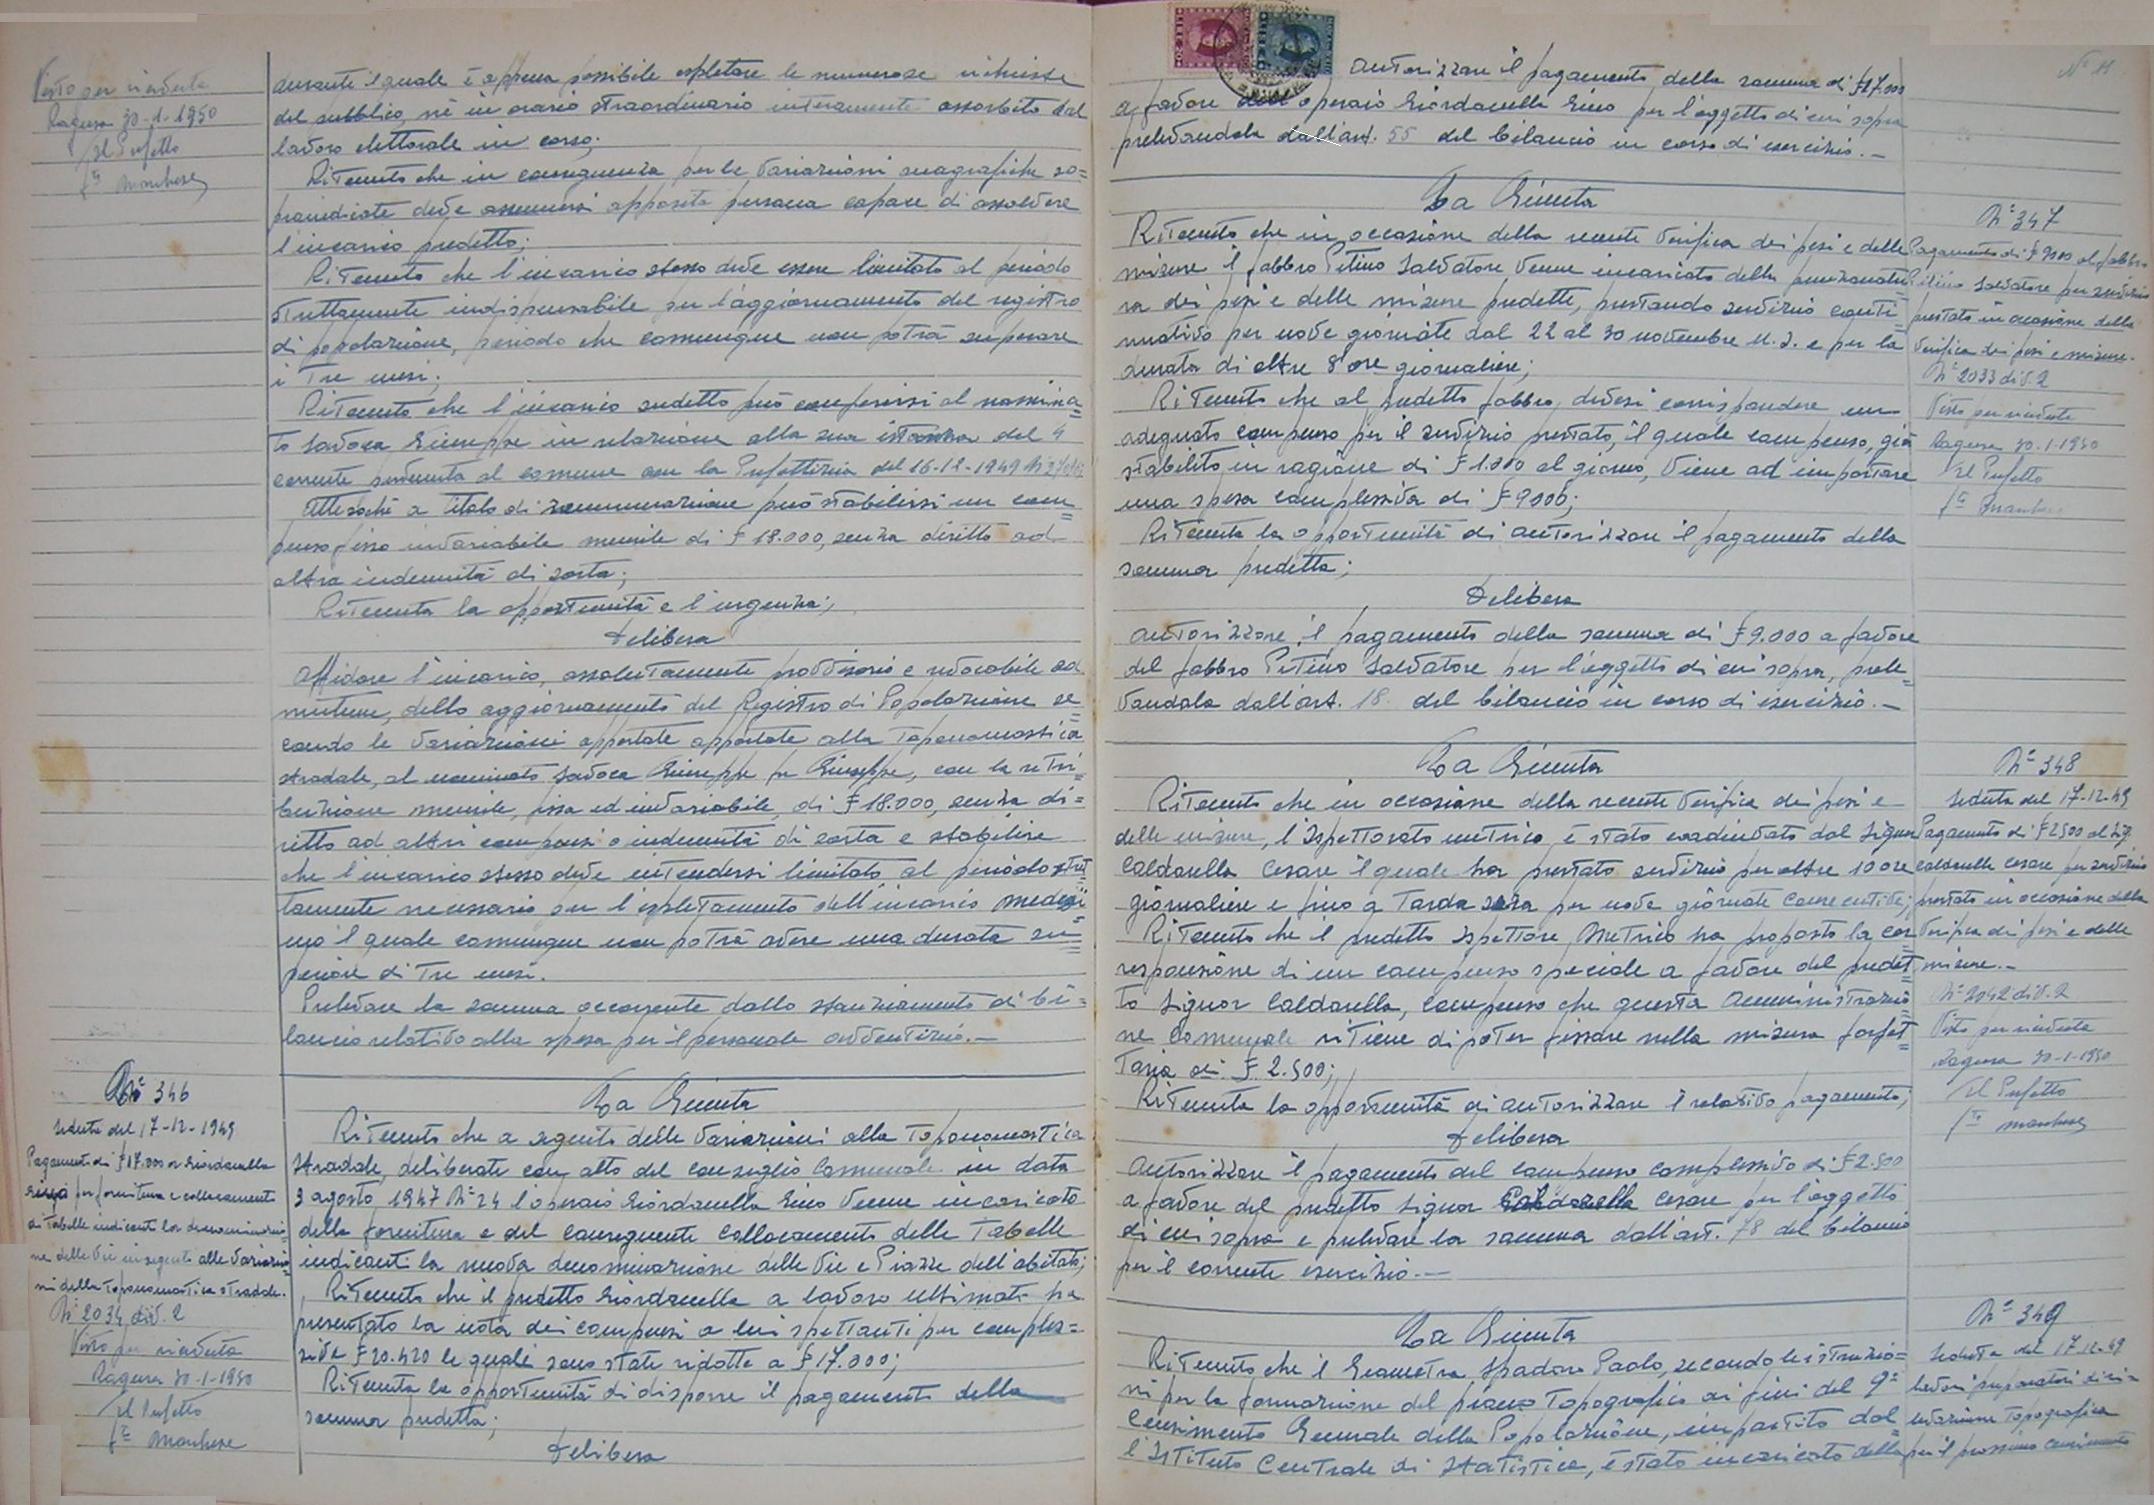 Visto per ricevuta
Ragusa 30-1-1950
Il Prefetto
durante il quale è appena possibile espletare le numerose richieste
del pubblico, nè in orario straordinario interamente assorbito dal
lavoro elettorale in corso;
Ritenuto che in conseguenza per le variazioni anagrafiche so=
praindicate deve assumersi apposita persona capace di assolvere
l'incarico predetto;
Ritenuto che l'incarico stesso deve essere limitato al periodo
strettamente indispensabile per l'aggiornamento del registro
di popolazione, periodo che comunque non potrà superare
i Tre mesi;
Ritenuto che l'incarico sudetto può conferirsi al nomina=
to Savoca Giuseppe in relazione alla sua istanza del 4
corrente pervenuta al comune con la Prefettizia del 16-12-1949
Attesochè a titolo di remunerazione può stabilirsi un com=
penso fisso invariabile mensile di £ 18.000, senza diritto ad
altra indennità di sorta;
Ritenuta la opportunità e l'urgenza;
Delibera
Affidare l'incarico, assolutamente provvisorio e revocabile ad
nutum, dello aggiornamento del Registro di Popolazione se=
condo le variazioni apportate apportate alla Toponomastica
stradale, al nominato Savoca Giuseppe fu Giuseppe, con la retri=
buzione mensile, fissa ed invariabile, di £ 18.000, senza di=
ritto ad altri compensi o indennità di sorta e stabilire
che l'incarico stesso deve intendersi limitato al periodo stret=
tamente necessario per l'espletamento dell'incarico medesi=
mo il quale comunque non potrà avere una durata su=
periore di Tre mesi.
Prelevare la somma occorrente dallo stanziamento di bi=
lancio relativo alla spesa per il personale avventizio.—
N° 346
Seduta del 17-12-1949
Pagamento di £ 17.000 a Giordanella
Gino per fornitura e collocamento
di Tabelle indicanti la denominazio=
ne delle Vie in seguito alle Variazio=
ni della Toponomastica stradale.
N° 2034 div. 2
Visto per ricevuta
Ragusa 30-1-1950
Il Prefetto
La Giunta
Ritenuto che a seguito delle variazioni alla Toponomastica
Stradale, deliberate con atto del Consiglio Comunale in data
3 agosto 1947 N° 24 l'operaio Giordanella Gino venne incaricato
della fornitura e del conseguente collocamento delle Tabelle
indicanti la nuova denominazione delle Vie e Piazze dell'abitato;
Ritenuto che il predetto Giordanella a lavoro ultimato ha
presentato la nota dei compensi a lui spettanti per comples=
sive £ 20.420 le quali sono state ridotte a £ 17.000;
Ritenuta la opportunità di disporre il pagamento della
somma predetta;
Delibera
N° 11
autorizzare il pagamento della somma di £ 17.000
a favore dell'operaio Giordanella Gino per l'oggetto di cui sopra
prelevandola dall'art. 55 del bilancio in corso di esercizio.—
La Giunta
Ritenuto che in occasione della recente verifica dei pesi e delle
misure il fabbro Pitino Salvatore venne incaricato della punzonatu
ra dei pesi e delle misure predette, prestando servizio conti=
nuativo per nove giornate dal 22 al 30 novembre u.s. e per la
durata di oltre 8 ore giornaliere;
Ritenuto che al predetto fabbro devesi corrispondere un
adeguato compenso per il servizio prestato, il quale compenso, già
stabilito in ragione di £ 1.000 al giorno, viene ad importare
una spesa complessiva di £ 9000;
Ritenuta la opportunità di autorizzare il pagamento della
somma predetta;
Delibera
autorizzare il pagamento della somma di £ 9.000 a favore
del fabbro Pitino Salvatore per l'oggetto di cui sopra, prele=
vandola dall'art. 18. del bilancio in corso di esercizio.—
N° 347
Pagamento di £ 9000 al fabbro
Pitino Salvatore per servizio
prestato in occasione della
Verifica dei pesi e misure.
N° 2033 div. 2
Visto per ricevuta
Ragusa 30-1-1950
Il Prefetto
La Giunta
Ritenuto che in occasione della recente verifica dei pesi e
delle misure, l'Ispettorato metrico è stato coadiuvato dal Signor
Caldarella Cesare il quale ha prestato servizio per oltre 10 ore
giornaliere e fino a Tarda sera per nove giornate consecutive;
Ritenuto che il predetto Ispettore Metrico ha proposto la cor
responsione di un compenso speciale a favore del predet=
to Signor Caldarella, compenso che questa Amministrazio
ne Comunale ritiene di poter fissare nella misura forfet=
taria di £ 2.500;
Ritenuta la opportunità di autorizzare il relativo pagamento;
Delibera
autorizzare il pagamento del compenso complessivo di £ 2.500
a favore del predetto Signor Caldarella Cesare per l'oggetto
di cui sopra e prelevare la somma dall'art. 78 del bilancio
per il corrente esercizio.—
N° 348
Seduta del 17-12-49
Pagamento di £ 2500 al Sig.
Caldarella Cesare per servizio
prestato in occasione della
Verifica di pesi e delle
misure.—
N° 2042 div. 2
Visto per ricevuta
Ragusa 30-1-1950
Il Prefetto
La Giunta
Ritenuto che il Geometra Spadaro Paolo, secondo le istruzio=
ni per la formazione del piano Topografico ai fini del 9°
Censimento Generale della Popolazione, impartite dal=
l'Istituto Centrale di Statistica, è stato incaricato della
N° 349
Seduta del 17-12-49
Lavori preparatori di ri=
levazione Topografica
per il prossimo censimento